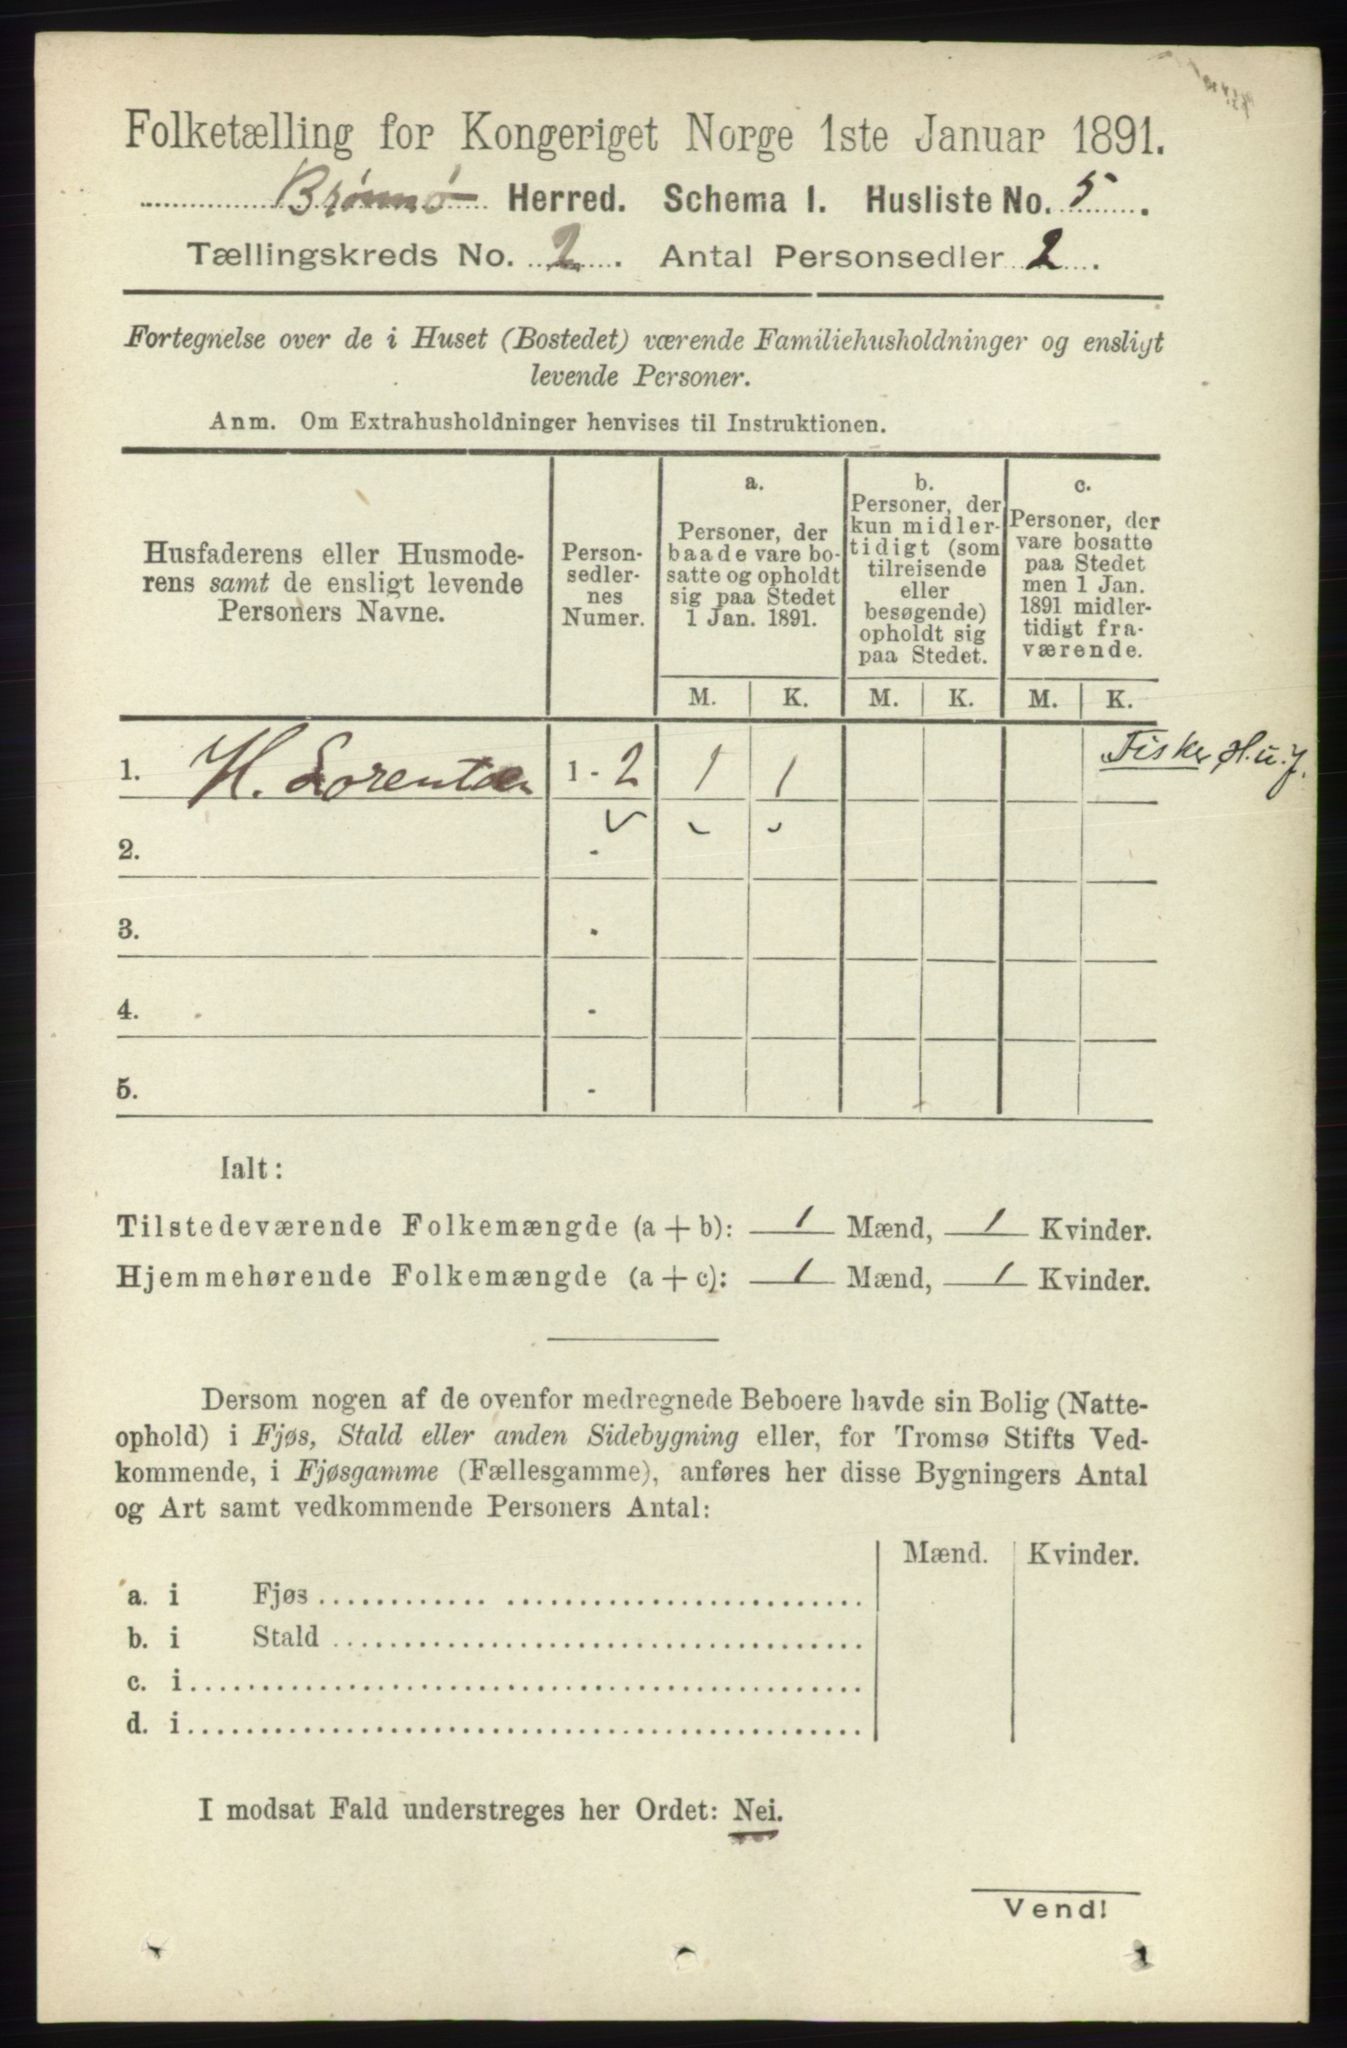 Folketælling for Kongeriget Norge 1ste Januar 1891.
Brønnø Herred. Schema I. Husliste No. 5.
Tællingskreds No. 2. Antal Personsedler 2.
Fortegnelse over de i Huset (Bostedet) værende Familiehusholdninger og ensligt
levende Personer.
Anm. Om Extrahusholdninger henvises til Instruktionen.
Husfaderens eller Husmode-
rens samt de ensligt levende
Personers Navne.
Person-
sedler-
nes
Numer.
a.
Personer, der
baade vare bo-
satte og opholdt
sig paa Stedet
1 Jan. 1891.
b.
Personer, der
kun midler-
tidigt (som
tilreisende
eller
besøgende)
opholdt sig
paa Stedet.
c.
Personer, der
vare bosatte
paa Stedet
men 1 Jan.
1891 midler-
tidigt fra-
værende.
M. K. M. K. M. K.
1. H. Lorentzen 1 - 2 1 1 Fisker H. u. J.
2. -
3. -
4. -
5. -
Ialt:
Tilstedeværende Folkemængde (a + b): 1 Mænd, 1 Kvinder.
Hjemmehørende Folkemængde (a + c): 1 Mænd, 1 Kvinder.
Dersom nogen af de ovenfor medregnede Beboere havde sin Bolig (Natte-
ophold) i Fjøs, Stald eller anden Sidebygning eller, for Tromsø Stifts Ved-
kommende, i Fjøsgamme (Fællesgamme), anføres her disse Bygningers Antal
og Art samt vedkommende Personers Antal:
Mænd. Kvinder.
a. i Fjøs
b. i Stald
c. i
d. i
I modsat Fald understreges her Ordet: Nei.
Vend!